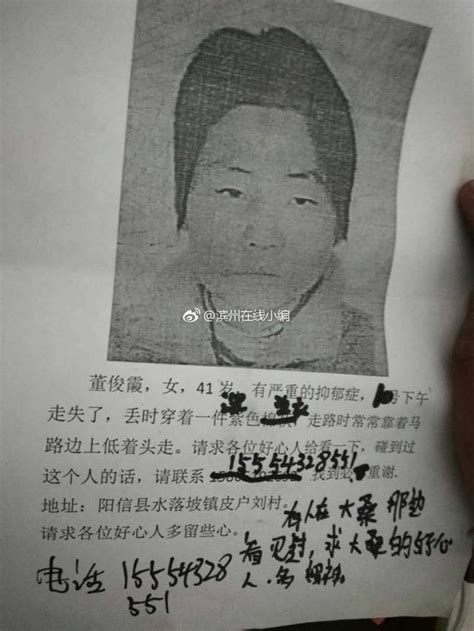 @滨州在线小编
董俊霞，女，41岁，有严重的抑郁症，10号下午
走失了，丢时穿着一件紫色 走路时常常靠着马
路边上低着头走。请求各位好心人给看一下，碰到过
这个人的话，请联系 15554328551 找到必重谢.
地址：阳信县水落坡镇皮户刘村。
请求各位好心人多留些心。
有人在大桑那边
看见 求大桑的
人.多
电话 15554328
551